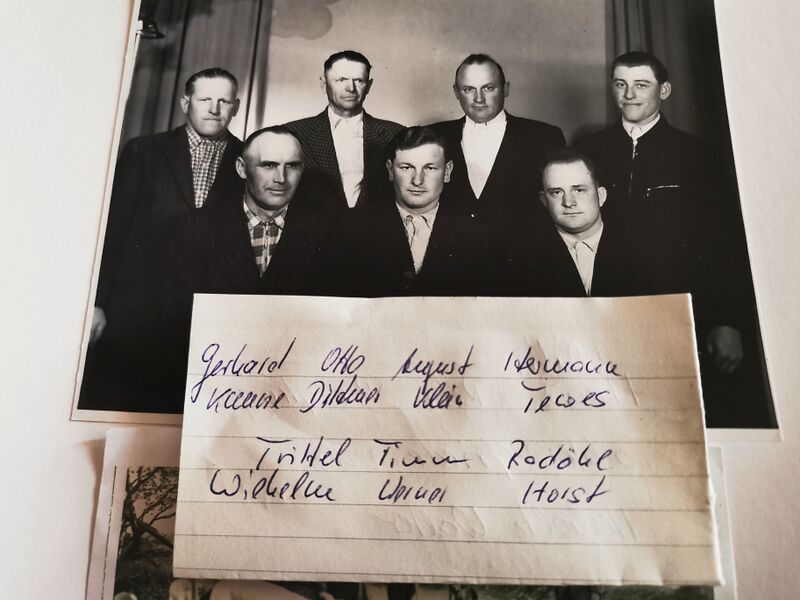 Gerhard Otto August Hermann
Kanne Dittmer Klein Tewes
Trittel Timm Radöhl
Wilhelm Werner Horst